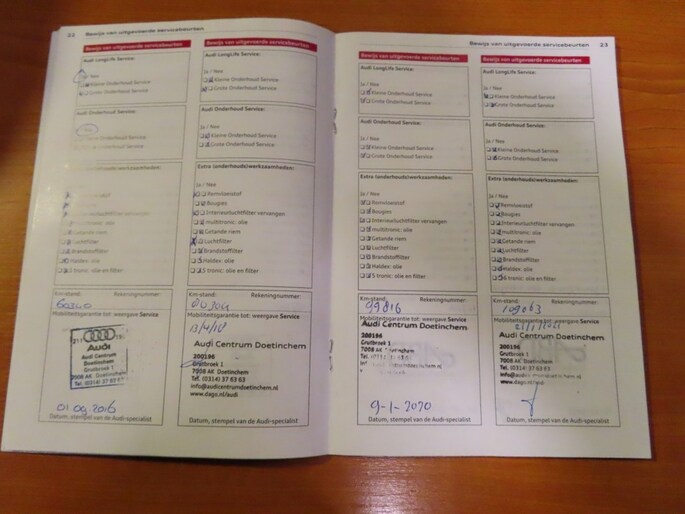 22 Bewijs van uitgevoerde servicebeurten
Bewijs van uitgevoerde servicebeurten
Audi LongLife Service:
Nee
Kleine Onderhoud Service
Grote Onderhoud Service
Audi Onderhoud Service:
Kleine Onderhoud Service
Grote Onderhoud Service
Extra (onderhouds)werkzaamheden:
Remvloeistof
Bougies
Interieurluchtfilter vervangen
multitronic: olie
Getande riem
Luchtfilter
Brandstoffilter
Haldex: olie
S tronic: olie en filter
Km-stand: Rekeningnummer:
Mobiliteitsgarantie tot: weergave Service
Audi
Audi Centrum
Doetinchem
Grotbroek 1
7008 AK Doetinchem
Tel. (0314) 37 63 63
01.09.2016
Datum, stempel van de Audi-specialist
Bewijs van uitgevoerde servicebeurten
Audi LongLife Service:
Ja / Nee
Kleine Onderhoud Service
Grote Onderhoud Service
Audi Onderhoud Service:
Ja / Nee
Kleine Onderhoud Service
Grote Onderhoud Service
Extra (onderhouds)werkzaamheden:
Ja / Nee
Remvloeistof
Bougies
Interieurluchtfilter vervangen
multitronic: olie
Getande riem
Luchtfilter
Brandstoffilter
Haldex: olie
S tronic: olie en filter
Km-stand: Rekeningnummer:
Mobiliteitsgarantie tot: weergave Service
13/4/18
Audi Centrum Doetinchem
200196
Grotbroek 1
7008 AK Doetinchem
Tel. (0314) 37 63 63
info@audicentrumdoetinchem.nl
www.dago.nl/audi
Datum, stempel van de Audi-specialist
Bewijs van uitgevoerde servicebeurten 23
Bewijs van uitgevoerde servicebeurten
Audi LongLife Service:
Ja / Nee
Kleine Onderhoud Service
Grote Onderhoud Service
Audi Onderhoud Service:
Ja / Nee
Kleine Onderhoud Service
Grote Onderhoud Service
Extra (onderhouds)werkzaamheden:
Ja / Nee
Remvloeistof
Bougies
Interieurluchtfilter vervangen
multitronic: olie
Getande riem
Luchtfilter
Brandstoffilter
Haldex: olie
S tronic: olie en filter
Km-stand: Rekeningnummer:
99816
Mobiliteitsgarantie tot: weergave Service
Audi Centrum Doetinchem
200196
Grotbroek 1
7008 AK Doetinchem
www.dago.nl/audi
9-1-2020
Datum, stempel van de Audi-specialist
Bewijs van uitgevoerde servicebeurten
Audi LongLife Service:
Ja / Nee
Kleine Onderhoud Service
Grote Onderhoud Service
Audi Onderhoud Service:
Ja / Nee
Kleine Onderhoud Service
Grote Onderhoud Service
Extra (onderhouds)werkzaamheden:
Ja / Nee
Remvloeistof
Bougies
Interieurluchtfilter vervangen
multitronic: olie
Getande riem
Luchtfilter
Brandstoffilter
Haldex: olie
S tronic: olie en filter
Km-stand: Rekeningnummer:
109063
Mobiliteitsgarantie tot: weergave Service
Audi Centrum Doetinchem
200196
Grotbroek 1
7008 AK Doetinchem
Tel. (0314) 37 63 63
www.dago.nl/audi
Datum, stempel van de Audi-specialist